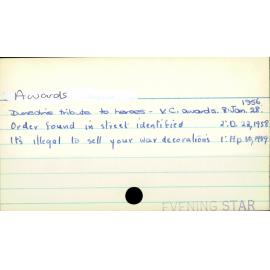 Awards
1956
Dunedin's tribute to heroes - V.C. awards. 8. Jan. 28.
Order found in street identified 2. D. 23, 1958
It's illegal to sell your war decorations 1. Ap. 10, 1959.
EVENING STAR